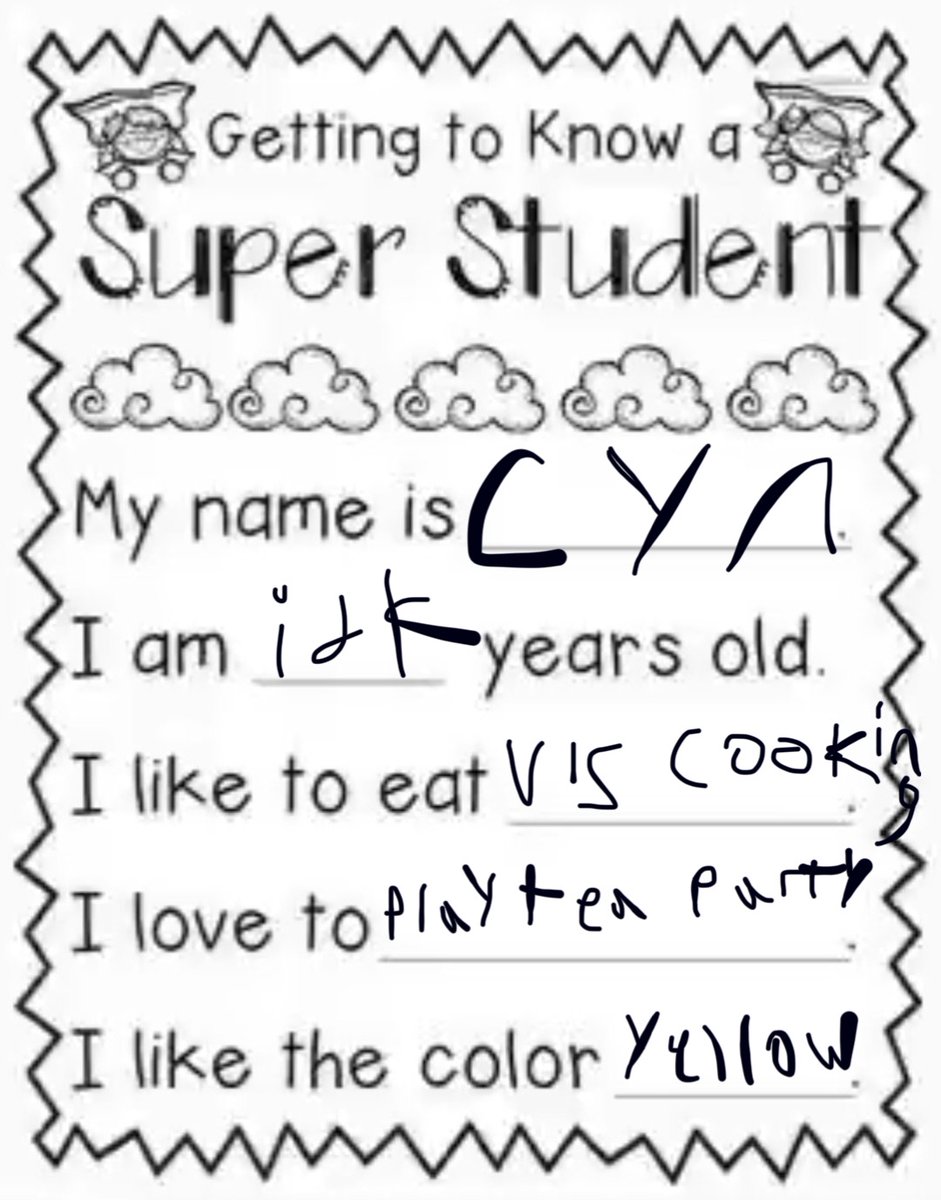 Getting to Know a
Super Student
My name is CYn.
I am idk years old.
I like to eat VIS cooking.
I love to Play tea Party.
I like the color Yellow.